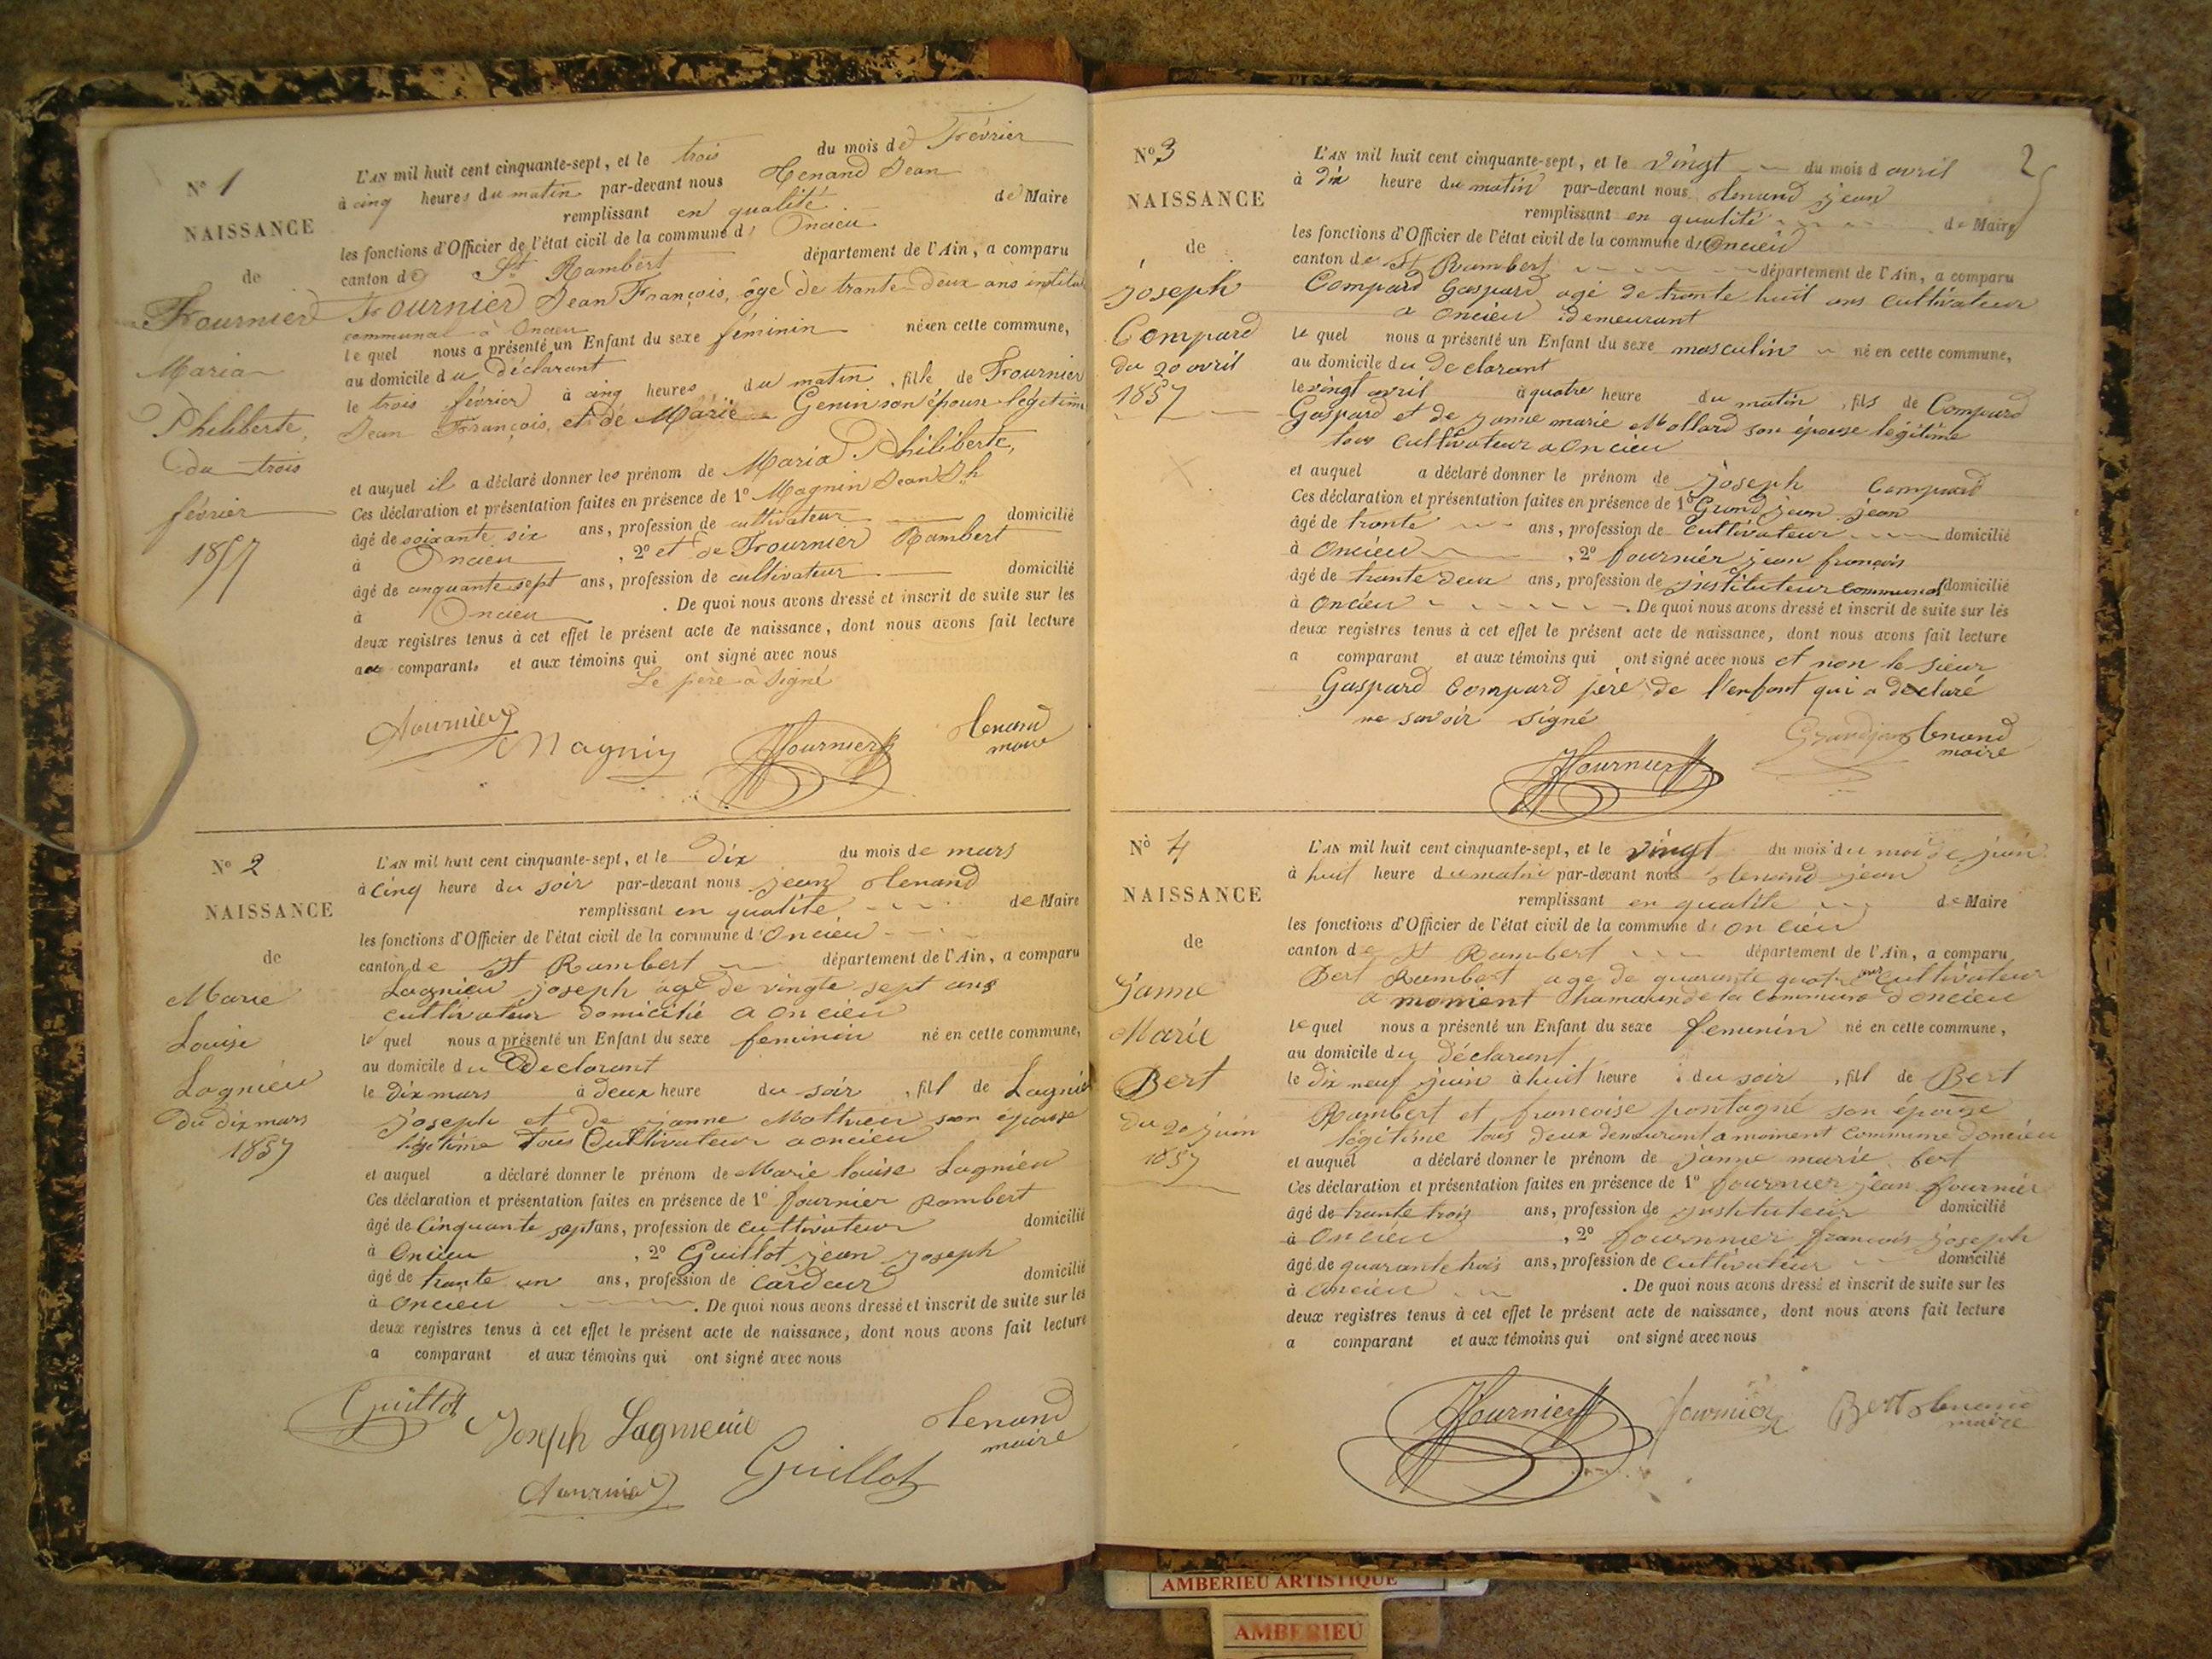 N° 1
NAISSANCE
de
Fournier
Maria
Philiberte,
du trois
février
1857
L'AN mil huit cent cinquante-sept, et le trois du mois de Février
à cinq heures du matin par-devant nous Henand Jean
remplissant en qualité de Maire
les fonctions d'Officier de l'état civil de la commune d' Oncieu
canton de St Rambert département de l'Ain, a comparu
Fournier Jean François, âgé de trante-deux ans institut
communal à Oncieu
le quel nous a présenté un Enfant du sexe féminin née en cette commune,
au domicile du déclarant
le trois février à cinq heures du matin, fille de Fournier
Jean François, et de Marie Genin son épouse légitime
et auquel il a déclaré donner les prénom de Maria Philiberte,
Ces déclaration et présentation faites en présence de 1° Magnin Jean Jh
âgé de soixante six ans, profession de cultivateur domicilié
à Oncieu, 2° et de Fournier Rambert
âgé de cinquante sept ans, profession de cultivateur domicilié
à Oncieu. De quoi nous avons dressé et inscrit de suite sur les
deux registres tenus à cet effet le présent acte de naissance, dont nous avons fait lecture
aux comparants et aux témoins qui ont signé avec nous
Le père a signé
Fournier Magnin Fournier Henand
maire
N° 2
NAISSANCE
de
Marie
Louise
Lagnieu
du dix mars
1857
L'AN mil huit cent cinquante-sept, et le dix du mois de mars
à cinq heure du soir par-devant nous jean henand
remplissant en qualité de Maire
les fonctions d'Officier de l'état civil de la commune d' Oncieu
canton de St Rambert département de l'Ain, a comparu
Lagnieu joseph agé de vingte sept ans
cultivateur domicilié a oncieu
le quel nous a présenté un Enfant du sexe feminin né en cette commune,
au domicile du Declarant
le dix mars à deux heure du soir, fill de Lagnie
joseph et de janne son épouse
légitime tous Cultivateur a oncieu
et auquel a déclaré donner le prénom de Marie louise Lagnieu
Ces déclaration et présentation faites en présence de 1° fournier Rambert
âgé de cinquante sept ans, profession de cultivateur domicilié
à Oncieu, 2° Guillot jean joseph
âgé de trante un ans, profession de Cardeur domicilié
à oncieu. De quoi nous avons dressé et inscrit de suite sur les
deux registres tenus à cet effet le présent acte de naissance, dont nous avons fait lecture
a comparant et aux témoins qui ont signé avec nous
Guillot Joseph Lagnieu henand
maire
Fournier Guillot
2
N° 3
NAISSANCE
de
joseph
Compard
du 20 avril
1857
L'AN mil huit cent cinquante-sept, et le vingt du mois d avril
à dix heure du matin par-devant nous henand jean
remplissant en qualité de Maire
les fonctions d'Officier de l'état civil de la commune d' Oncieu
canton de St Rambert département de l'Ain, a comparu
Compard Gaspard agé de trante huit ans cultivateur
a oncieu demeurant
le quel nous a présenté un Enfant du sexe masculin né en cette commune,
au domicile du Declarant
le vingt avril à quatre heure du matin, fils de Compard
Gaspard et de janne marie Mollard son épouse légitime
tous cultivateur a oncieu
et auquel a déclaré donner le prénom de joseph Compard
Ces déclaration et présentation faites en présence de 1° Grand jean jean
âgé de trante ans, profession de cultivateur domicilié
à Oncieu, 2° fournier jean françois
âgé de trante deux ans, profession de instituteur communal domicilié
à Oncieu. De quoi nous avons dressé et inscrit de suite sur les
deux registres tenus à cet effet le présent acte de naissance, dont nous avons fait lecture
a comparant et aux témoins qui ont signé avec nous et non le sieur
Gaspard Compard père de l'enfant qui a déclaré
ne savoir signé
Grandjean henand
maire
Fournier
N° 4
NAISSANCE
de
janne
Marie
Bert
du 20 juin
1857
L'AN mil huit cent cinquante-sept, et le vingt du mois du mois de juin
à huit heure du matin par-devant nous henand jean
remplissant en qualité de Maire
les fonctions d'Officier de l'état civil de la commune d' oncieu
canton de St Rambert département de l'Ain, a comparu
Bert Rambert age de quarante quatre ans cultivateur
a moment hamaux de la commune d oncieu
le quel nous a présenté un Enfant du sexe femenin né en cette commune,
au domicile du déclarant
le dix neuf juin à huit heure du soir, fill de Bert
Rambert et françoise pontagné son épouse
légitime tous deux demeurant a moment commune doncieu
et auquel a déclaré donner le prénom de janne marie bert
Ces déclaration et présentation faites en présence de 1° fournier jean fournier
âgé de trante trois ans, profession de instituteur domicilié
à Oncieu, 2° fournier françois joseph
âgé de quarante trois ans, profession de cultivateur domicilié
à Oncieu. De quoi nous avons dressé et inscrit de suite sur les
deux registres tenus à cet effet le présent acte de naissance, dont nous avons fait lecture
a comparant et aux témoins qui ont signé avec nous
Fournier fournier Bert henand
maire
AMBERIEU ARTISTIQUE
AMBERIEU